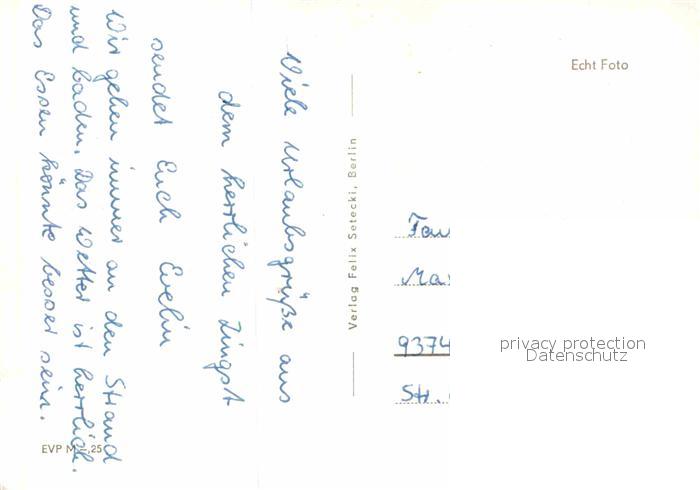 Viele Urlaubsgrüße aus
dem herrlichen Zingst
sendet Euch Evelin
Wir gehen immer an den Strand
und baden. Das Wetter ist herrlich.
Das Essen könnte besser sein.
EVP M -,25
Verlag Felix Setecki, Berlin
Echt Foto
Fam
Mar
9374
Str.
privacy protection
Datenschutz